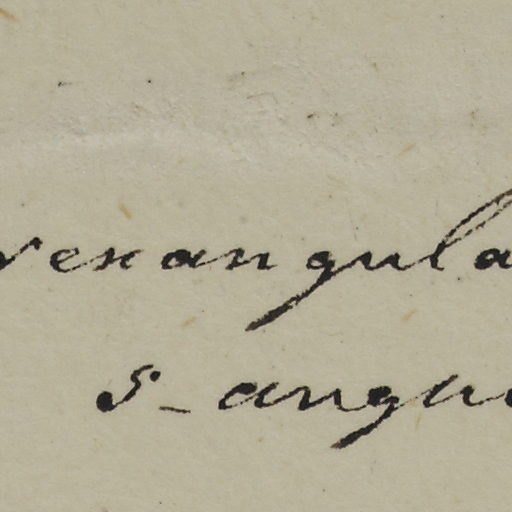 sexangula
5-angu